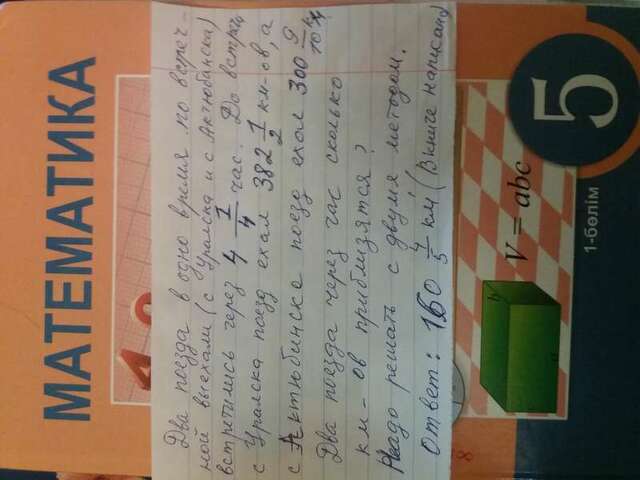 МАТЕМАТИКА
Два поезда в одно время по встреч-
ной выехали (с Уралска и с Актюбанска)
встретились через 4 1/4 час. До встречи
с Уралска поезд ехал 382 1/2 км-ов, а
с Актюбинско поезд ехал 300 9/10 км
Два поезда через час сколько
км-ов приблизятся?
Надо решать с двумя методом.
Ответ: 160 4/5 км (В книге написано)
8
b
a
V = abc
1-бөлім
5